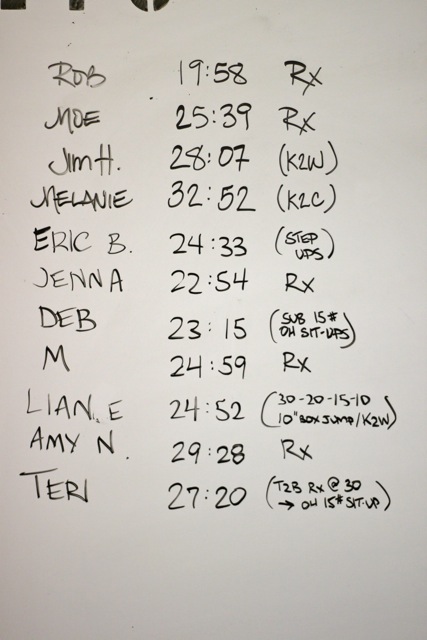 ROB 19:58 Rx
MOE 25:39 Rx
JIM H. 28:07 (K2W)
MELANIE 32:52 (K2C)
ERIC B. 24:33 (STEP
UPS)
JENNA 22:54 Rx
DEB 23:15 (SUB 15#
OH SIT-UPS)
M 24:59 Rx
LIAN. E 24:52 (30-20-15-10
10" BOX JUMP/K2W)
AMY N. 29:28 Rx
TERI 27:20 (T2B Rx @ 30
→ OH 15# SIT-UP)